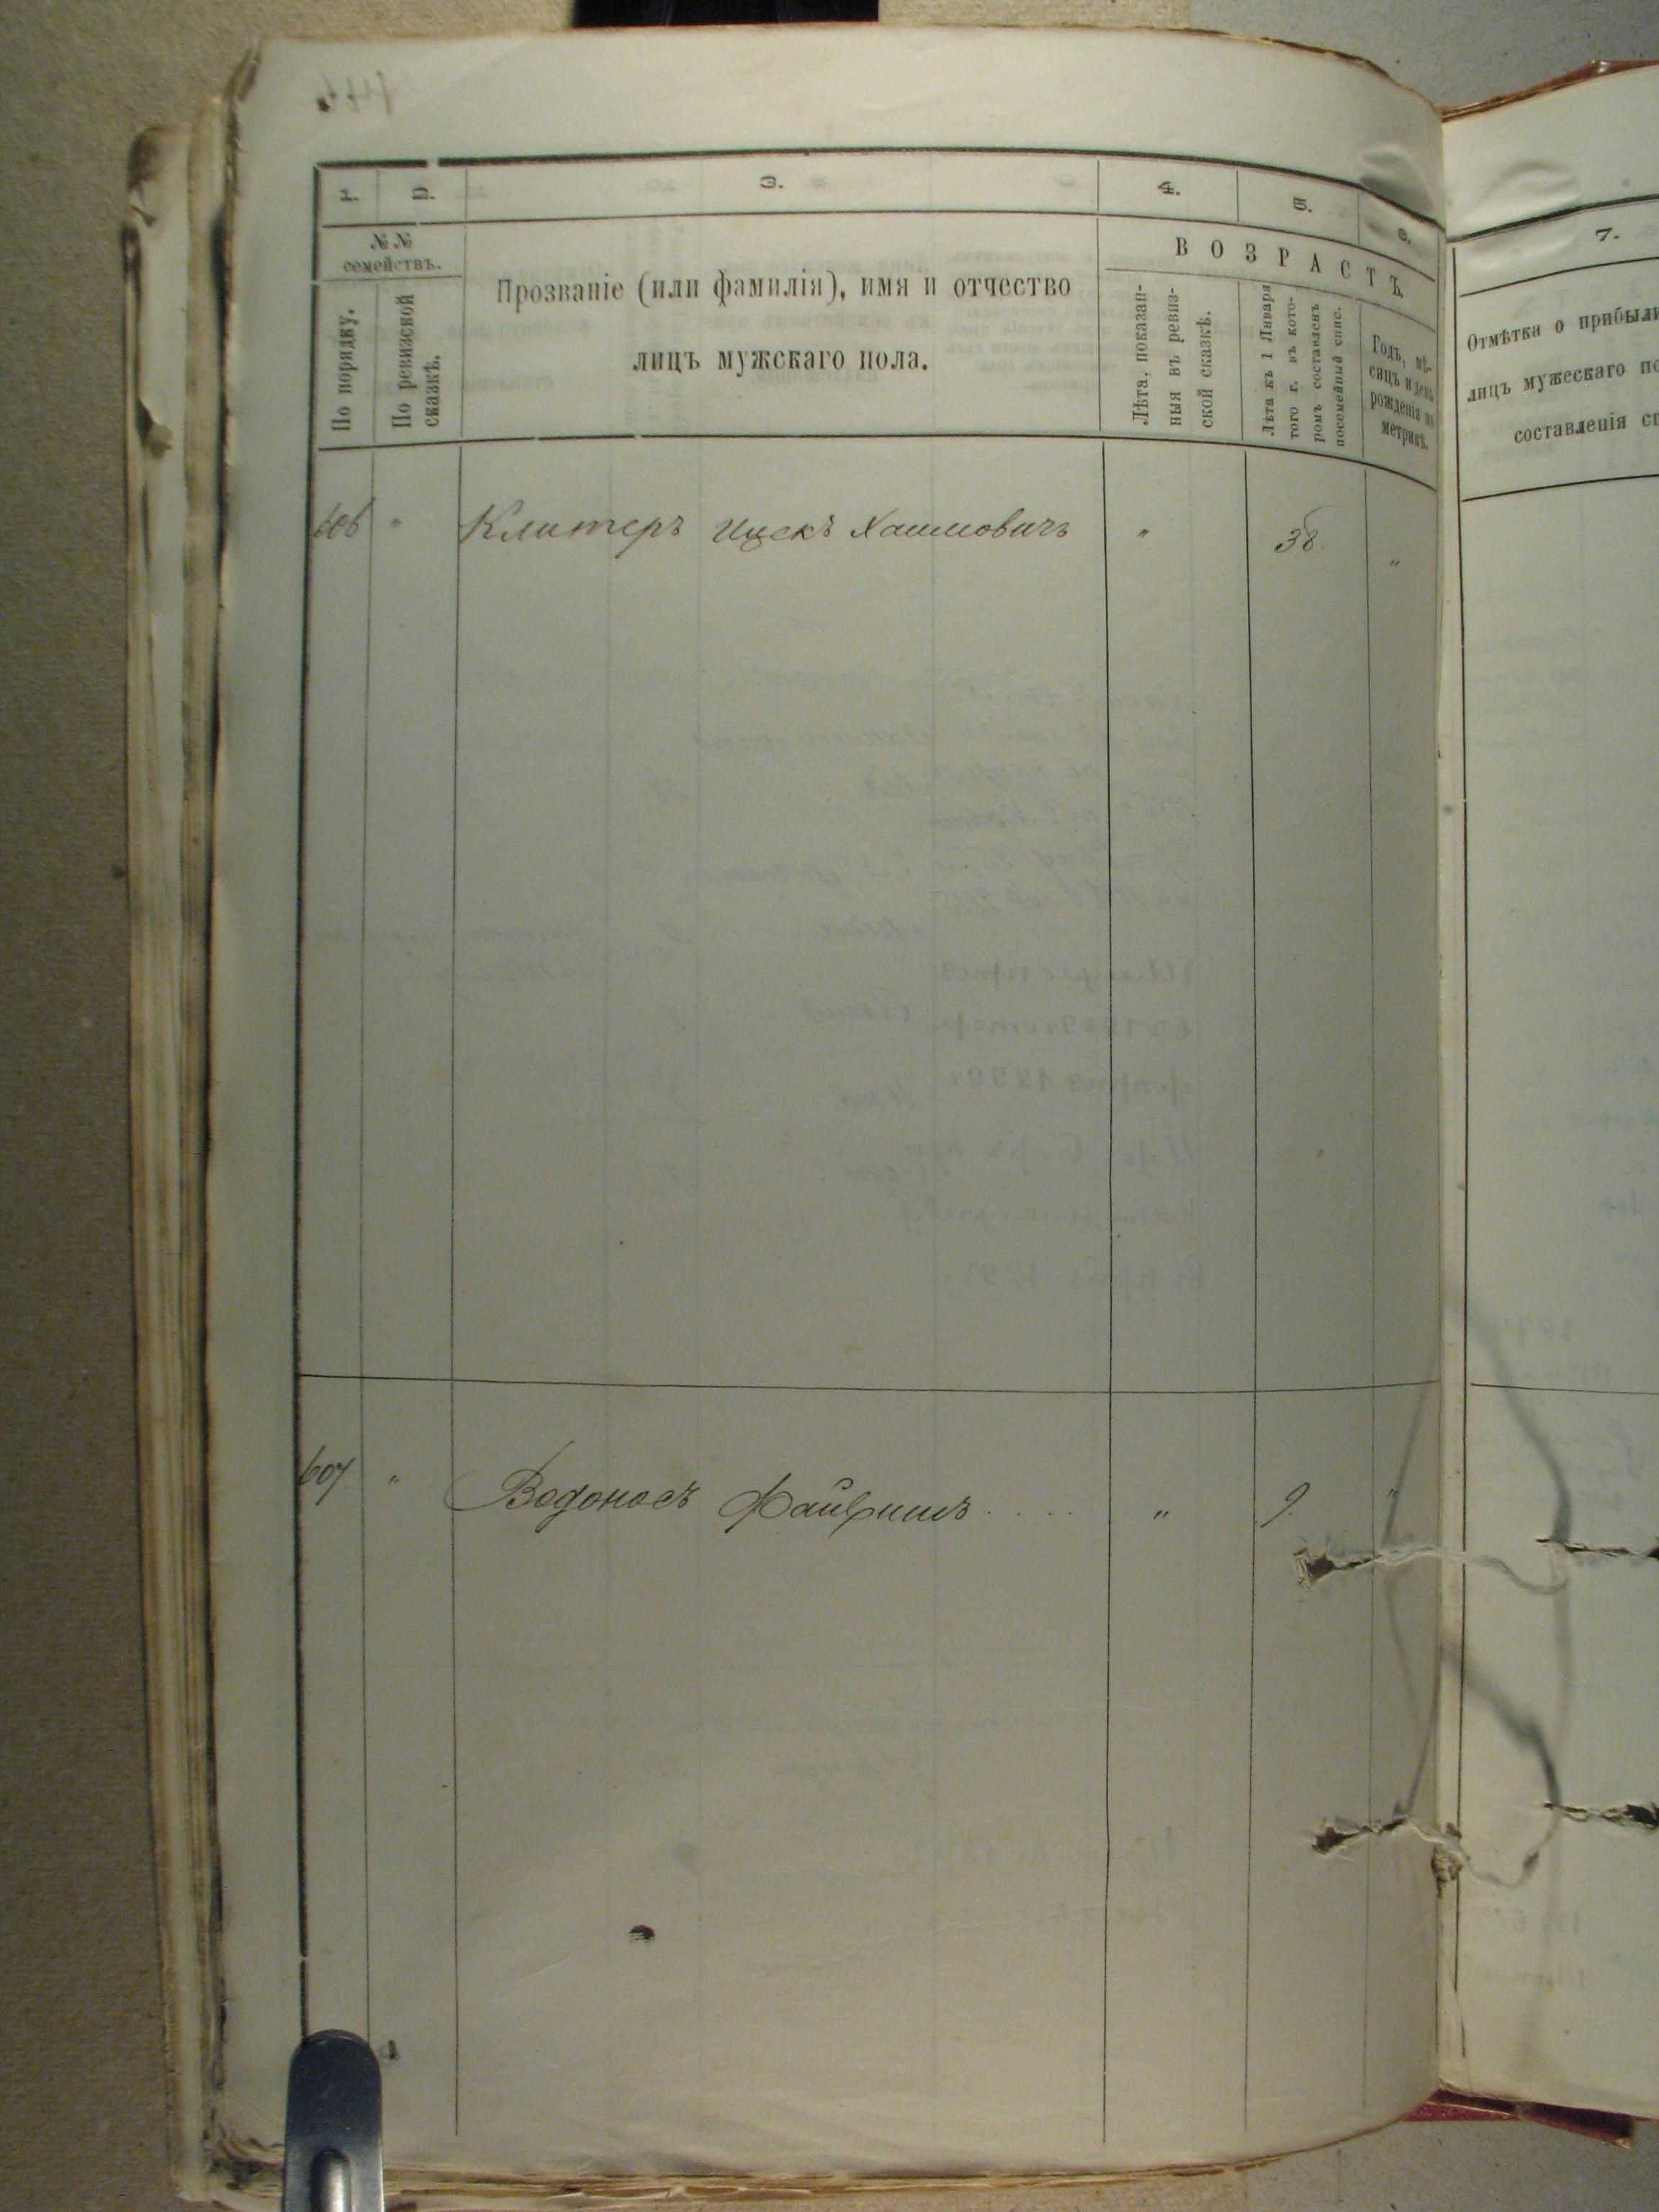 1. 2. 3. 4. 5. 6.
№ № семействъ.
По порядку.
По ревизской сказкѣ.
Прозваніе (или фамилія), имя и отчество
лицъ мужскаго пола.
ВОЗРАСТЪ.
Лѣта, показан-
ныя въ ревиз-
ской сказкѣ.
Лѣта къ 1 Января
того г. въ кото-
ромъ составленъ
посемейный спис.
Годъ, мѣ-
сяцъ и день
рожденія по
метрикѣ.
7.
Отмѣтка о прибыли
лицъ мужескаго по
составленія сп
606 " Клитеръ Ицекъ Хаимовичъ " 38. "
607 " Водоносъ Файвишъ . . . . " 9. "